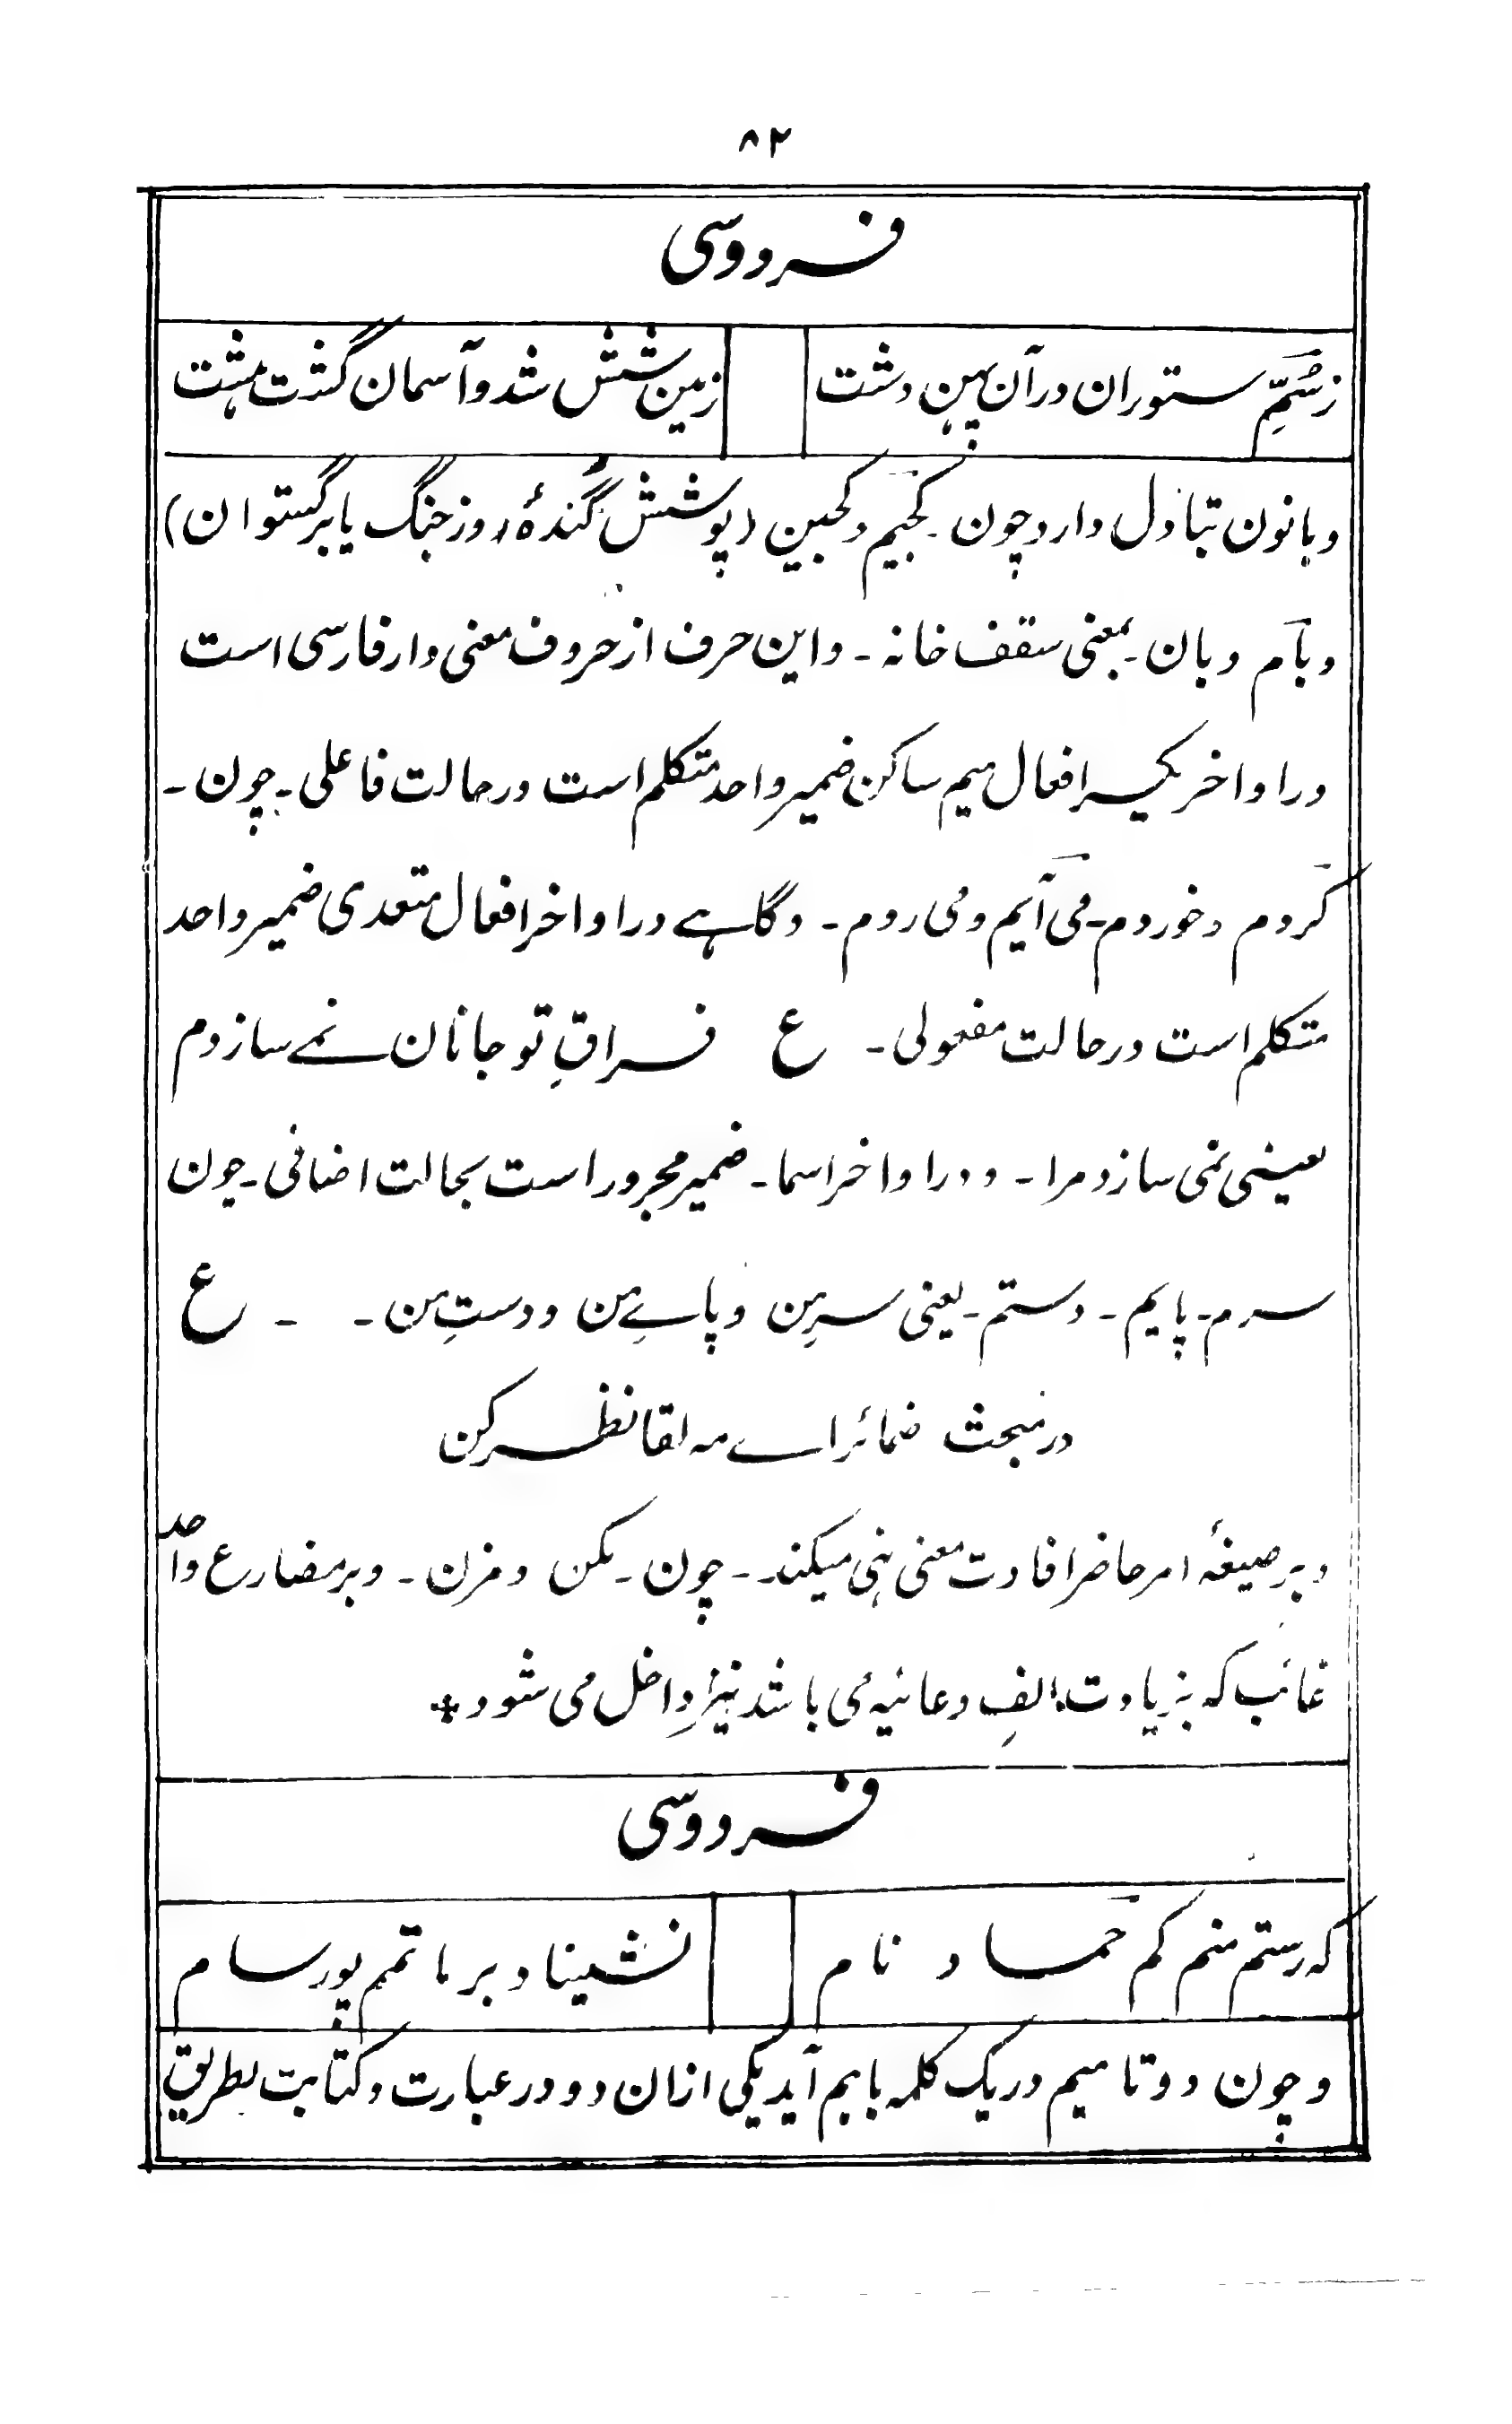 ۸۲
فردوسی
زسُمِّ ستوران درآن پہن دشت زمین شش شد و آسمان گشت ہشت
و بانون تبادل دارد چون ۔ کجیم و کجین (پوشش گُندهٔ روز جنگ یا برگستوان)
و بام و بان ۔ بمعنی سقف خانہ ۔ و این حرف از حروف معنی دار فارسی است
در اواخر یکسر افعال میم ساکن ضمیر واحد متکلم است در حالت فاعلی ۔ چون ۔
کردم و خوردم ۔ می آیم و می روم ۔ و گاہے در اواخر افعال متعدی ضمیر واحد
متکلم است در حالت مفعولی ۔ ع فراقِ تو جانان نمے سازدم
یعنی نمی سازد مرا ۔ و در اواخر اسما ۔ ضمیر مجرور است بحالت اضافی ۔ چون
سرم ۔ پایم ۔ دستم ۔ یعنی سرِ من و پاےِ من و دستِ من ۔ ۔ ع
در مبحث ضمائر اے مہ لقا نظر کن
و بر صیغهٔ امر حاضر افادت معنی نہی میکند ۔ چون ۔ مکن و مزن ۔ و بر مضارع واحد
غائب کہ بزیادت الفِ دعائیہ می باشد نیز داخل می شود *
فردوسی
کہ رستم منم کم مماناد نام نشیناد بر ماتمم پور سام
و چون دو تا میم در یک کلمہ باہم آید یکی ازان دو در عبارت و کتابت بطریق